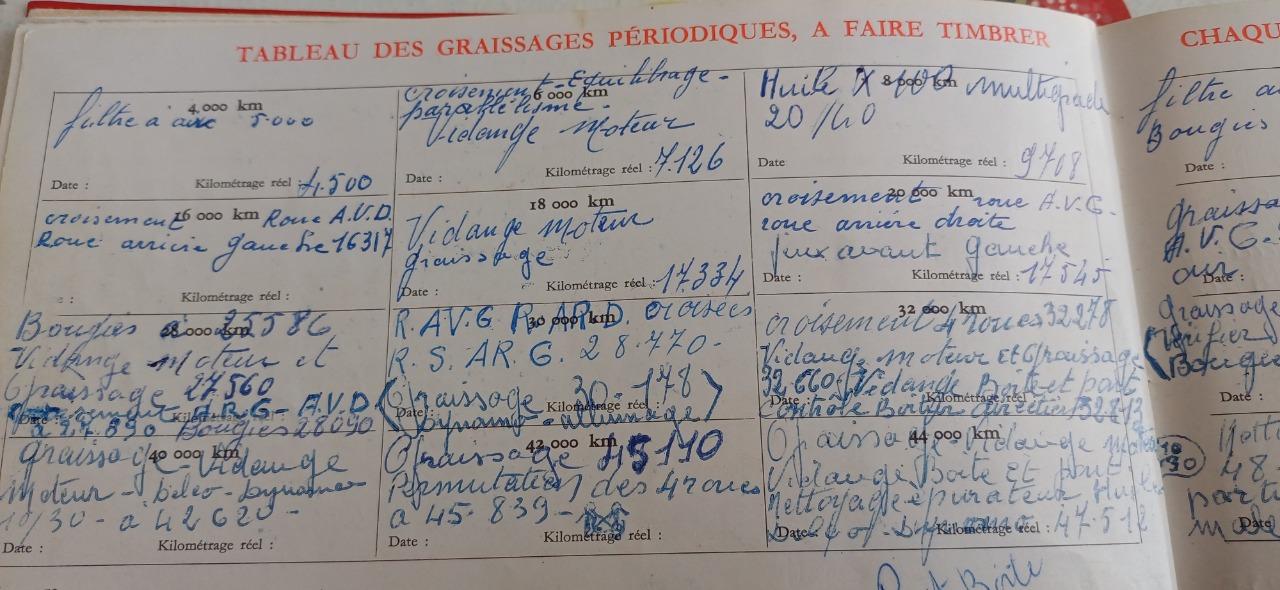 TABLEAU DES GRAISSAGES PÉRIODIQUES, A FAIRE TIMBRER
4,000 km
filtre a air 5.000
Date :
Kilométrage réel : 4.500
croisement Equilibrage -
6 000 km
parallélisme -
Vidange Moteur
Date :
Kilométrage réel : 7.126
8 000 km
Huile X 100 multigrade
20/40
Date
Kilométrage réel : 9708
16 000 km
croisement Roue A.V.D.
Roue arrière gauche 16317
Kilométrage réel :
18 000 km
Vidange Moteur
graissage
Date :
Kilométrage réel : 17334
20 000 km
croisement roue A.V.G.
roue arrière droite
feux avant gauche
Date :
Kilométrage réel : 17545
28 000 km
Bougies à 25586
Vidange Moteur et
Graissage 27560
AR.G - A.V.D
à 27.690 Bougies 28090
30 000 km
R. AV.G R. AR.D. croisées
R. S. AR. G. 28.470-
Graissage 30-178
Dynamo - allumage
32 000 km
croisement 4 roues 32278
Vidange Moteur Et Graissage
32.660 Vidange Boite et pont
Contrôle direction
40 000 km
Graissage - Vidange
Moteur - Delco - Dynamo
10/30 - à 42620 -
Date :
Kilométrage réel :
42 000 km
Graissage 45140
Permutation des 4 roues
a 45.839 -
Date :
Kilométrage réel :
44 000 km
Graissage Vidange
Vidange Boite Et pont
Nettoyage épurateur
Date :
Kilométrage réel : 47.512
Boite
CHAQU
filtre
Bougies
Date :
A.V.G.
air
Date :
graissage
Vérifier
Bougies
Date :
10
30
48
Date